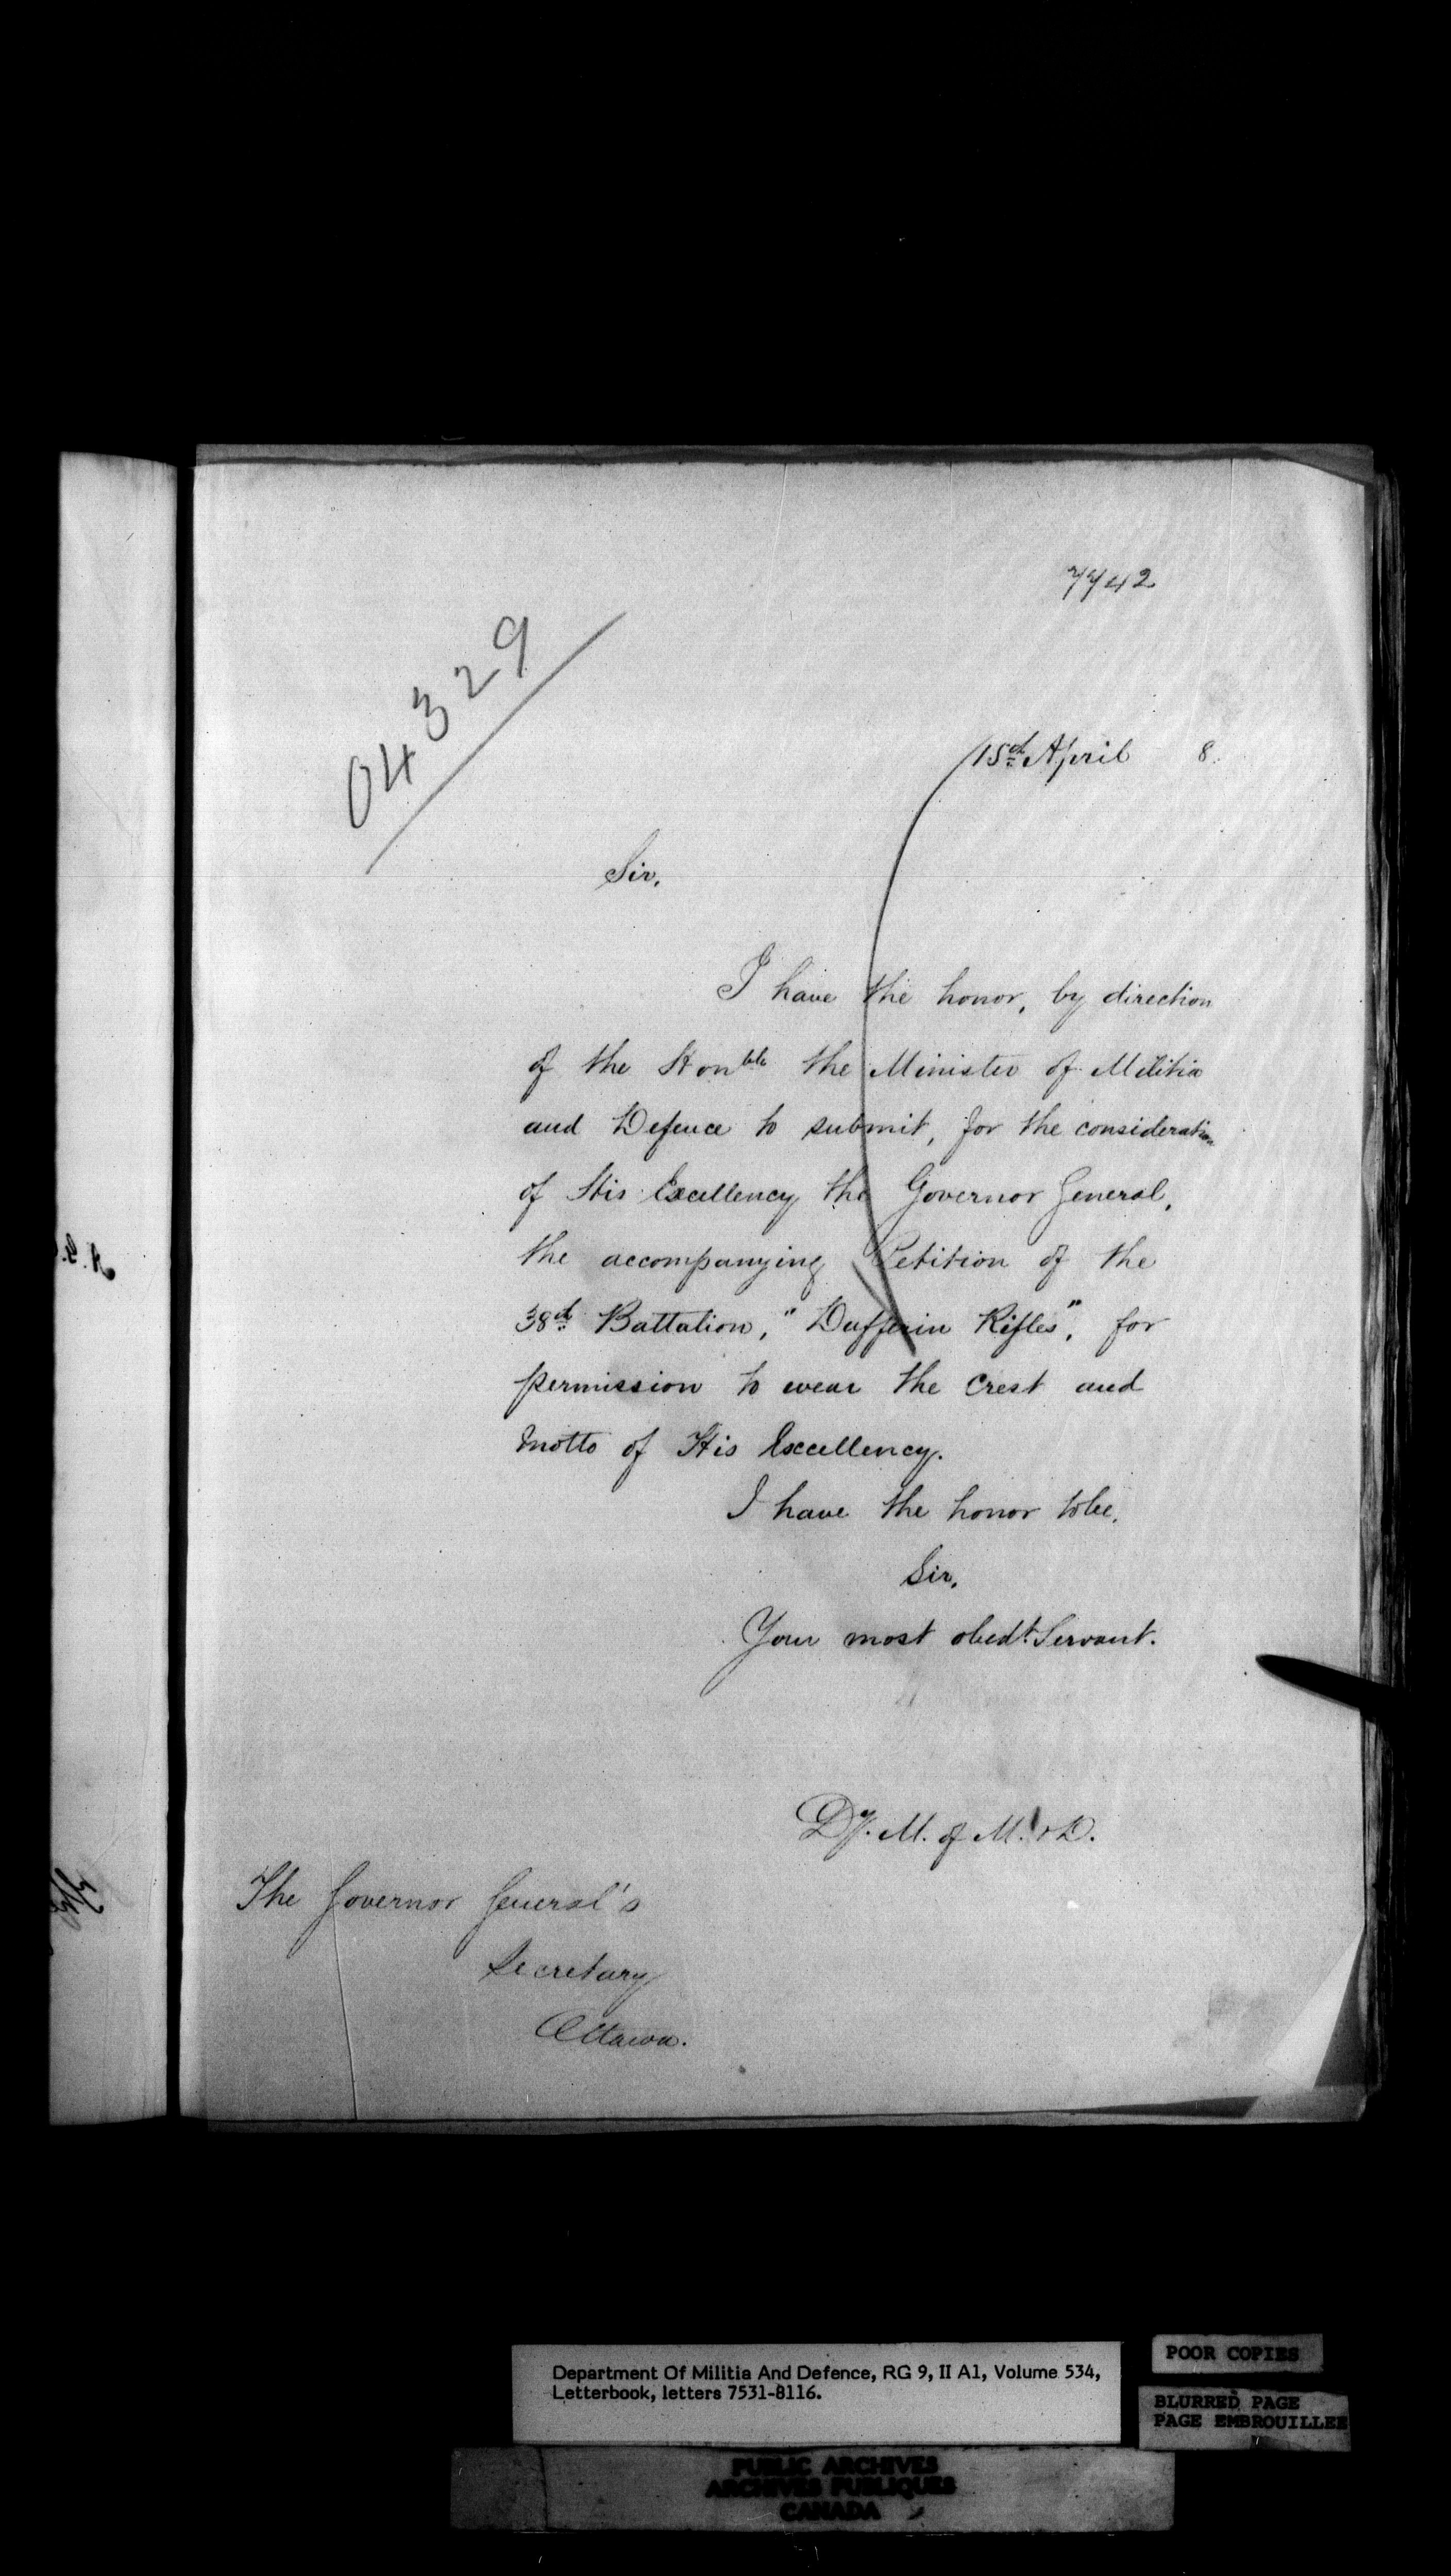 7742
04329
15th April 8.
Sir,
I have the honor, by direction
of the Honble the Minister of Militia
and Defence to submit, for the consideration
of His Excellency the Governor General,
the accompanying Petition of the
38th Battalion, "Dufferin Rifles", for
permission to wear the Crest and
motto of His Excellency.
I have the honor to be,
Sir,
Your most obedt. Servant.
Dy. M. of M. & D.
The Governor General's
Secretary
Ottawa.
Department Of Militia And Defence, RG 9, II A1, Volume 534,
Letterbook, letters 7531-8116.
POOR COPIES
BLURRED PAGE
PAGE EMBROUILLEE
PUBLIC ARCHIVES
ARCHIVES PUBLIQUES
CANADA